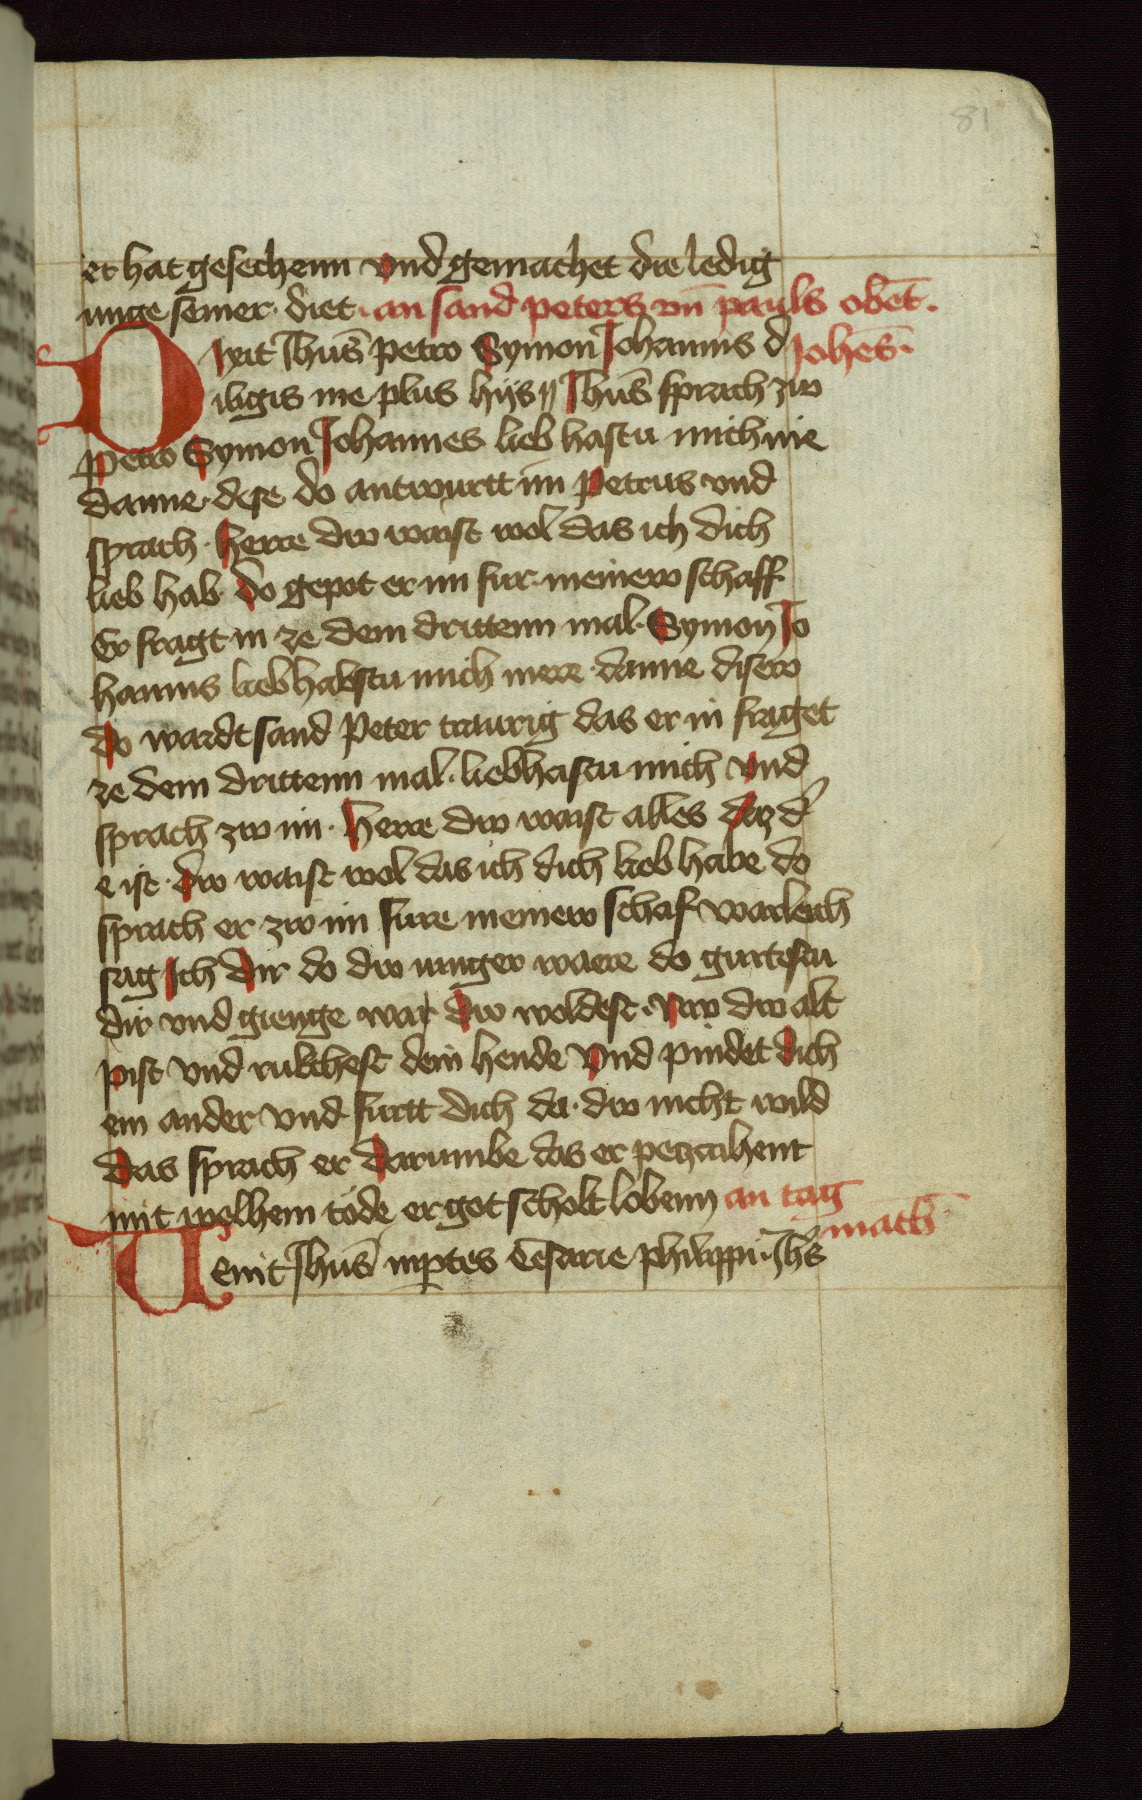 81
er hat gesechenn vnd gemachet die ledig
unge seiner · diet · an sand peters vn̄ pauls obēt ·
Dixit Jhūs petro Symon Johannis d Johēs ·
iligis me plus hijs ʺ Jhūs sprach zw
petro Symon Johannes lieb hastu mich me
danne · dese do antwurtt im petrus vnd
sprach · herre dw waist wol das ich dich
lieb hab · do gepot er im fur · meinew schaff
Er fragt in ze dem drittenn mal · Symon Jo
hannis liebhabstu mich mere · danne disew
do wardt sand Peter traurig das er in fraget
ze dem drittenn mal · liebhastu mich vnd
sprach zw im · herre dw waist alles daz d
e ist · dw waist wol das ich dich lieb habe do
sprach er zw im fure meinew schaf warleich
sag ich dir do dw iunger waere do gurtestu
dir vnd gienge war dw woldest · dw alt
pist vnd rukchest dein hende vnd pindet dich
ein ander vnd furtt dich da · dw nicht wild
das sprach er darumbe das er peczaihent
mit welhem tode er got scholt lobenn an tag
math
Uenit Jhūs inptes Cesarie philippi · Jhs